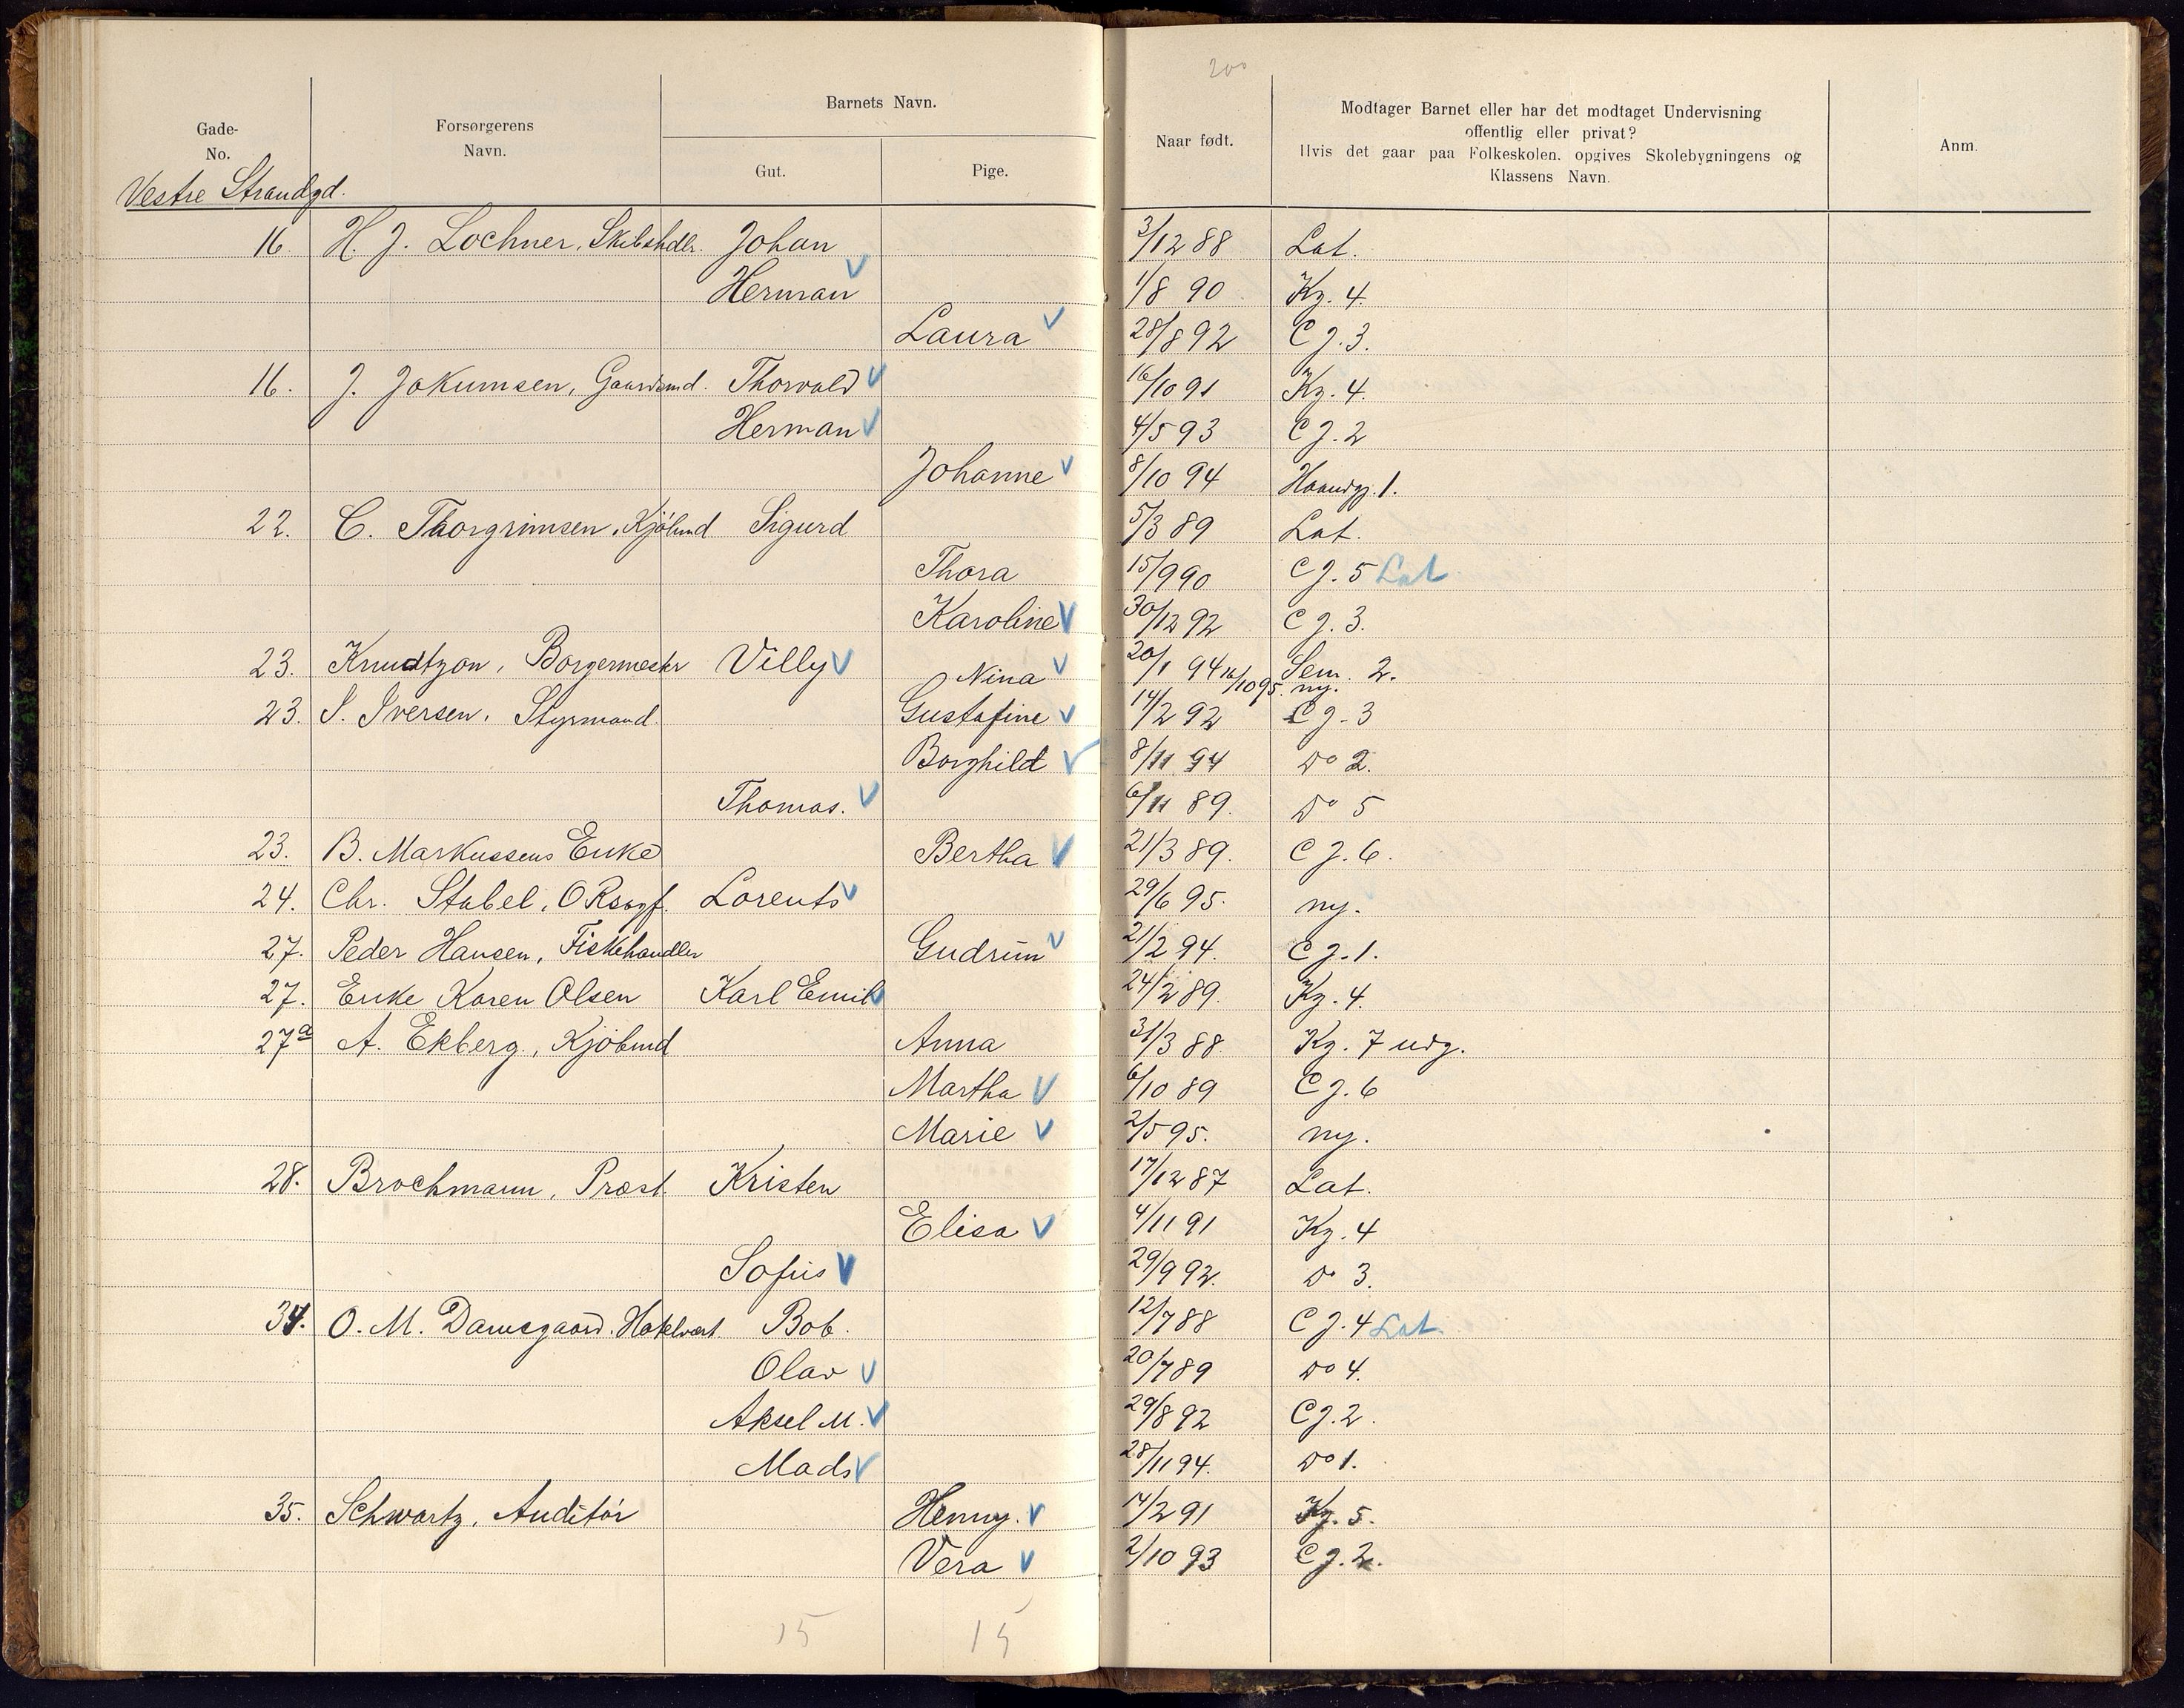 200
Gade-
No.
Forsørgerens
Navn.
Barnets Navn.
Gut.
Pige.
Naar født.
Modtager Barnet eller har det modtaget Undervisning
offentlig eller privat?
Hvis det gaar paa Folkeskolen, opgives Skolebygningens og
Klassens Navn.
Anm.
Vestre Strandgd.
16. H. J. Lochner, Skibshdlr. Johan 3/12 88 Lat.
Herman V 1/8 90 Kg. 4.
Laura V 28/8 92 C J. 3.
16. J. Jokumsen, Gaardsmd. Thorvald V 16/10 91 Kg. 4.
Herman V 4/5 93 C J. 2
Johanne V 8/10 94 Haandgj. 1.
22. C. Thorgrimsen, Kjøbmd Sigurd 5/3 89 Lat.
Thora 15/9 90 C J. 5 Lat
Karoline V 30/12 92 C J. 3.
23. Knudtzon, Borgermester Villy V Nina V 20/1 94 16/10 95. Sem. 2. ny.
23. S. Iversen, Styrmand. Gustafine V 14/2 92 C J. 3
Borghild V 8/11 94 Do 2.
Thomas. V 6/11 89. Do 5
23. B. Markussens Enke Bertha V 21/3 89. C J. 6.
24. Chr. Stabel, ORsagf. Lorents V 29/6 95. ny.
27. Peder Hansen, Fiskehandler Gudrun V 21/2 94. C J. 1.
27. Enke Karen Olsen Karl Emil V 24/2 89. Kg. 4.
27a A. Ekberg, Kjøbmd Anna 31/3 88. Kg. 7 udg.
Martha V 6/10 89 C J. 6
Marie V 2/5 95. ny.
28. Brochmann, Prost. Kristen 17/12 87 Lat.
Elisa V 4/11 91 Kg. 4
Sofus V 29/9 92. Do 3.
34. O. M. Damsgaard. Hotelvært Bob. 12/7 88 C J. 4 Lat.
Olav V 20/7 89 Do 4.
Aksel M. V 29/8 92 C J. 2.
Mads V 28/11 94. Do 1.
35. Schwartz, Auditør Henny. V 14/2 91 Kg. 5.
Vera V 2/10 93 C J. 2.
15 15